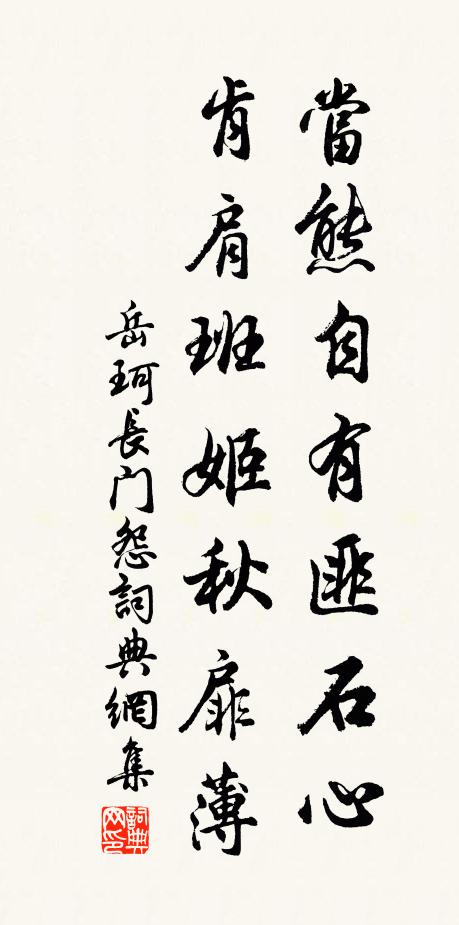 當熊自有匪石心
肯肩班姬秋扉薄
岳珂長门怨詞典網集
詞典网印